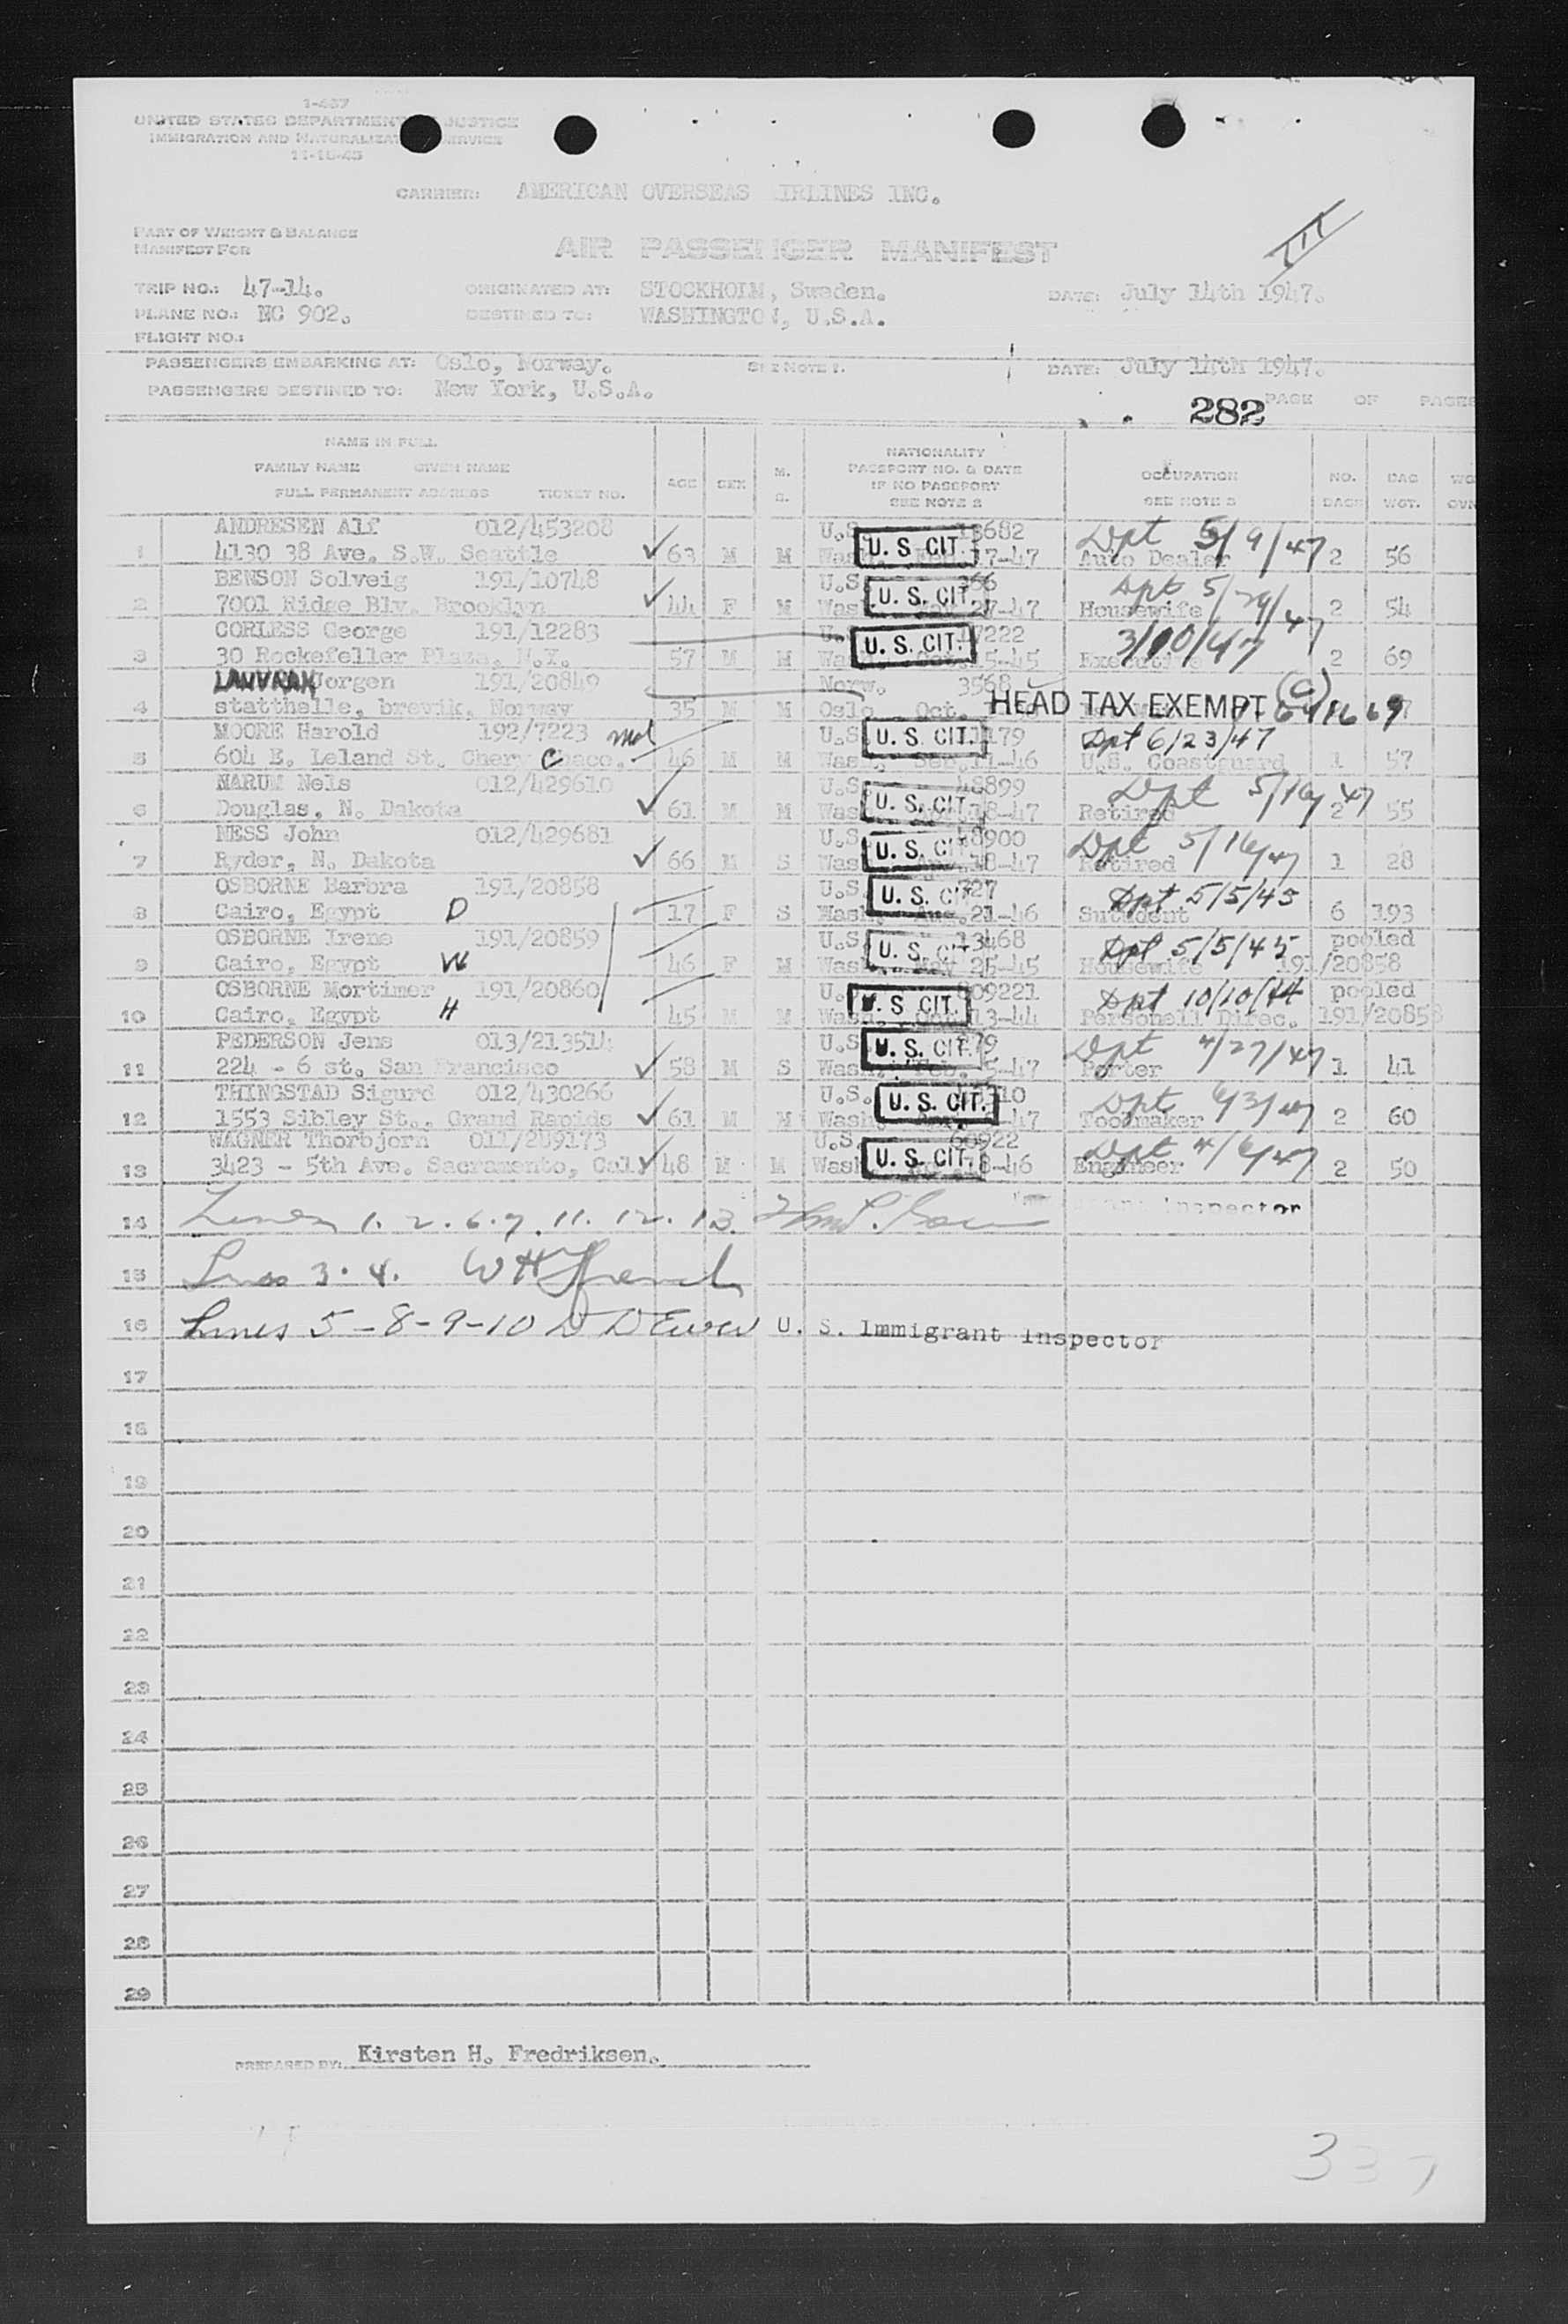 1-467
UNITED STATES DEPARTMENT JUSTICE
IMMIGRATION AND NATURALIZAT SERVICE
11-15-45
CARRIER: AMERICAN OVERSEAS IRLINES INC.
PART OF WEIGHT & BALANCE
MANIFEST FOR
AIR PASSENGER MANIFEST
TRIP NO.: 47-14. ORIGINATED AT: STOCKHOLM, Sweden. DATE: July 14th 1947.
PLANE NO.: NC 902. DESTINED TO: WASHINGTON, U.S.A.
FLIGHT NO.:
PASSENGERS EMBARKING AT: Oslo, Norway. SEE NOTE 1. DATE: July 14th 1947.
PASSENGERS DESTINED TO: New York, U.S.A.
282 PAGE OF PAGES
NAME IN FULL
FAMILY NAME GIVEN NAME
FULL PERMANENT ADDRESS TICKET NO.
AGE SEX M. S.
NATIONALITY
PASSPORT NO. & DATE
IF NO PASSPORT
SEE NOTE 2
OCCUPATION
SEE NOTE 3
NO. BAGS
BAG WGT.
ANDRESEN Alf 012/453208 U.S. 13682 Dpt 5/9/47
1 4130 38 Ave. S.W. Seattle 63 M M Wash. U. S. CIT. 7-47 Auto Dealer 2 56
BENSON Solveig 191/10748 U.S. 366 Dpt 5/29/47
2 7001 Ridge Blv. Brooklyn 44 F M Wash. U. S. CIT. 27-47 Housewife 2 54
CORLESS George 191/12283 U.S. 17222 3/10/47
3 30 Rockefeller Plaza, N.Y. 57 M M U. S. CIT. Oct. 15-45 Executive 2 69
LAUVRAK Jorgen 191/20849 Norw. 3568
4 statthelle, brevik, Norway 35 M M Oslo, Oct. HEAD TAX EXEMPT (C)
MOORE Harold 192/7223 U.S. U. S. CIT. 179 Dpt 6/23/47
5 604 E. Leland St. Chevy Chace. 46 M M Wash. 11-46 U.S. Coastguard 1 57
NARUM Nels 012/429610 U.S. 48899 Dpt 5/16/47
6 Douglas, N. Dakota 61 M M Wash. U. S. CIT. 18-47 Retired 2 55
NESS John 012/429681 U.S. 48900 Dpt 5/16/47
7 Ryder, N. Dakota 66 M S Wash. U. S. CIT. 18-47 Retired 1 28
OSBORNE Barbra 191/20858 U.S. 727 Dpt 5/5/45
8 Cairo, Egypt D 17 F S Wash. U. S. CIT. Aug. 21-46 Sutudent 6 193
OSBORNE Irene 191/20859 U.S. 13468 Dpt 5/5/45 pooled
9 Cairo, Egypt W 46 F M Wash. U. S. CIT. Nov 26-45 Housewife 191/20858
OSBORNE Mortimer 191/20860 U.S. 809221 Dpt 10/10/44 pooled
10 Cairo, Egypt H 45 M M Wash. U. S. CIT. 13-44 Personell Direc. 191/20858
PEDERSON Jens 013/213514 U.S. 879 Dpt 4/27/47
11 224 - 6 st. San Francisco 58 M S Wash. U. S. CIT. Feb. 5-47 Porter 1 41
THINGSTAD Sigurd 012/430266 U.S. 310 Dpt 6/3/47
12 1553 Sibley St., Grand Rapids 61 M M Wash. U. S. CIT. 47 Toolmaker 2 60
WAGNER Thorbjorn 011/289173 U.S. 60922 Dpt 4/6/47
13 3423 - 5th Ave. Sacramento, Cal 48 M M Wash. U. S. CIT. 18-46 Engineer 2 50
14 Lines 1. 2. 6. 7. 11. 12. 13. Inspector
15 Lines 3. 4. WH French
16 Lines 5-8-9-10 U. S. Immigrant Inspector
17
18
19
20
21
22
23
24
25
26
27
28
29
PREPARED BY: Kirsten H. Fredriksen.
337